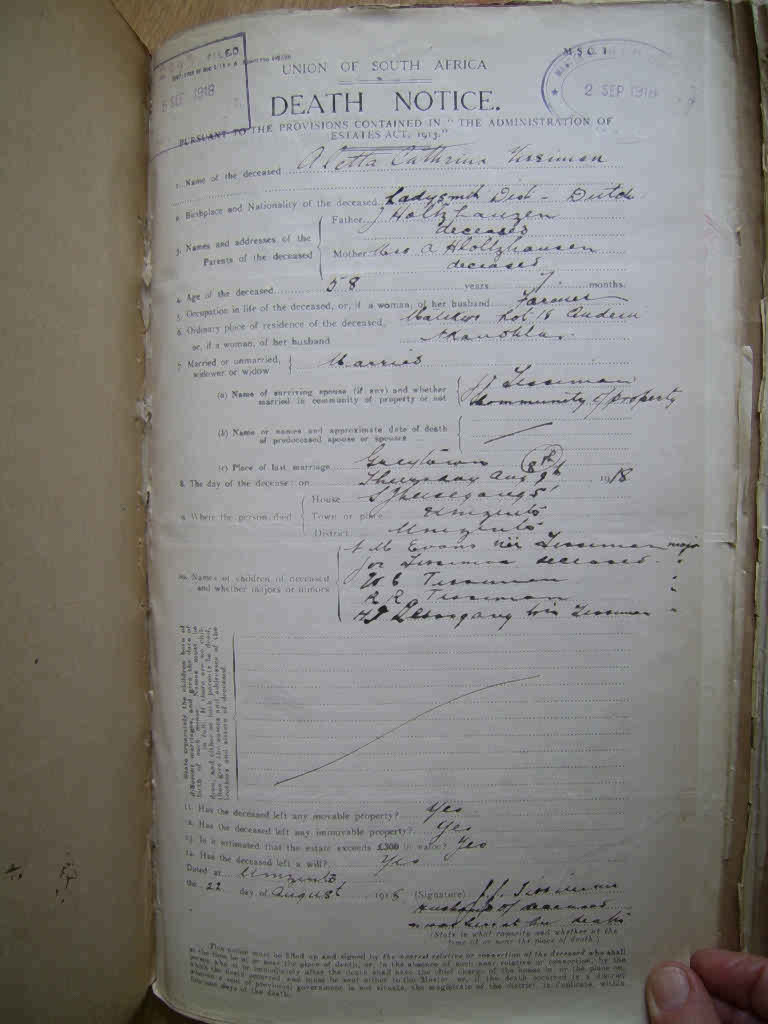 FILED
SEP 1918
M.S.C.
2 SEP 1918
UNION OF SOUTH AFRICA
DEATH NOTICE.
PURSUANT TO THE PROVISIONS CONTAINED IN "THE ADMINISTRATION OF
ESTATES ACT, 1913."
1. Name of the deceased Aletta Cathrina Tissiman
2. Birthplace and Nationality of the deceased Ladysmith Dist - Dutch
3. Names and addresses of the Parents of the deceased
Father J Holtzhauzen
deceased
Mother Mrs A Hloltzhausen
deceased
4. Age of the deceased 58 years 7 months.
5. Occupation in life of the deceased, or, if a woman, of her husband Farmer
6. Ordinary place of residence of the deceased, Lot 18
or, if a woman, of her husband
7. Married or unmarried, widower or widow Married
(a) Name of surviving spouse (if any) and whether married in community of property or not J J Tissiman
Community of Property
(b) Name or names and approximate date of death of predeceased spouse or spouses
(c) Place of last marriage Greytown
8. The day of the decease: on Thursday Aug 8th 1918
9. Where the person died
House
Town or place Umzinto
District Umzinto
10. Names of children of deceased and whether majors or minors
M Evans Tissiman major
Tissiman deceased "
W E Tissiman "
R R Tissiman "
Tissiman "
State separately the children born of
different marriages, and give the date of
birth of each minor. Names must be
in full. If there are no chil-
dren, and either or both parents be dead,
then give the names and addresses of the
brothers and sisters of deceased.
11. Has the deceased left any movable property? Yes
12. Has the deceased left any immovable property? Yes
13. Is it estimated that the estate exceeds £300 in value? Yes
14. Has the deceased left a will? Yes
Dated at Umzinto
the 22 day of August 1918 (Signature) J. J. Tissiman
Husband of deceased
death
(State in what capacity and whether at the
time of or near the place of death.)
This notice must be filled up and signed by the nearest relative or connection of the deceased who shall
at the time be at or near the place of death, or, in the absence of such near relative or connection, by the
person who at or immediately after the death shall have the chief charge of the house in, or the place on,
which the death occurred and must be sent either to the Master or, if the death occurred in a district
wherein a seat of provincial government is not situate, the magistrate of the district, in duplicate, within
fourteen days of the death.